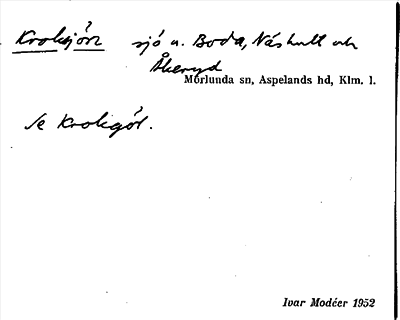 Kroksjön sjö u. Boda, Näshult och
Åkeryd
Mörlunda sn, Aspelands hd, Klm. l.
Se Krokgöl.
Ivar Modéer 1952